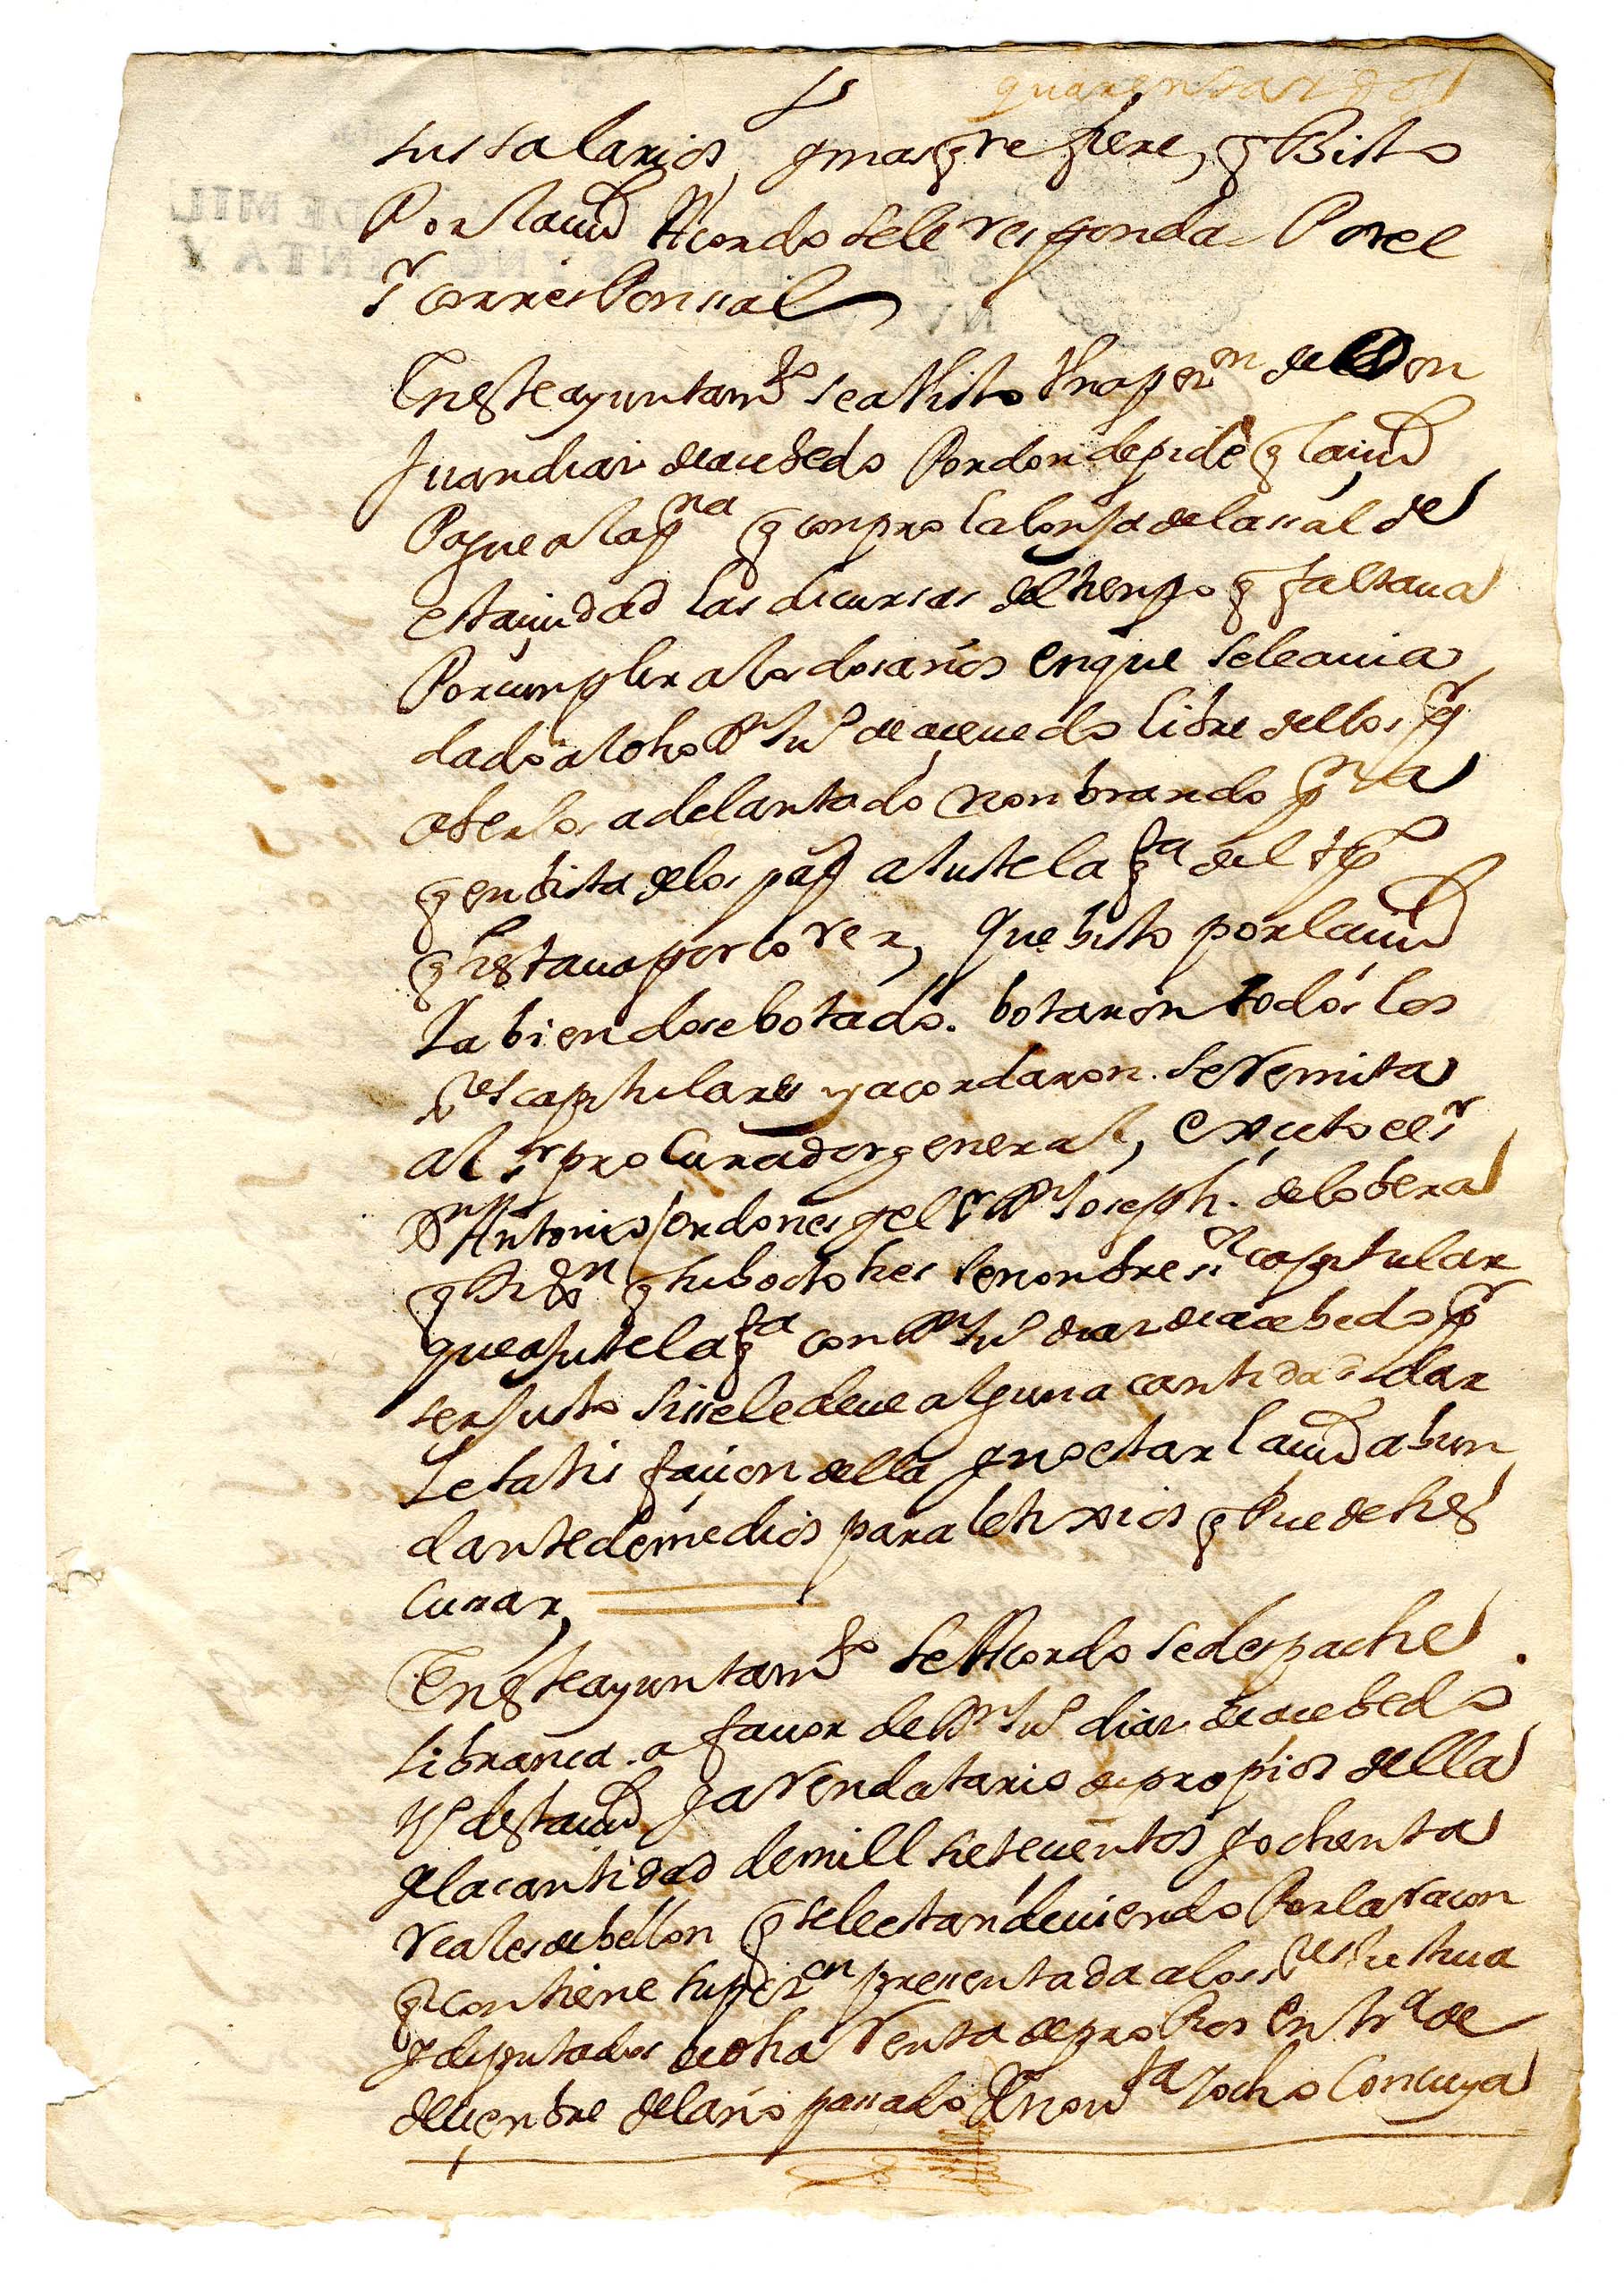 quarenta y dos
sus salarios, y mas q refiere, q Bisto
Por la ciud Acordo se le responda Por el
sr corresPonsal
En este ayuntamto se a Visto Una peon de Don
Juan diaz de acebedo Por donde pide q la ciud
Pague a la pna q conpro la lonja de la sal de
esta ciudad las dicursas del tienpo q faltava
Por cunplir a los dos años en que se le avia
dado a dho Dn Ju° de acevedo libre dellos pr
aberlos adelantado nonbrando pna
q en bista de los pap ajuste la qta del tpo
q estava por correr, que bisto por la ciud
habiendose botado. botaron todos los
sres capitulares y acordaron se Remita
al sr procurador general, excepto el sr
Dn Antonio ordones y el sr Dn Joseph. de lobera
q dixon q hubo dotres se nonbre sr capitular
que ajuste la qta con Dn Ju° diaz de acebedo pr
ser justo si se le deve alguna cantidad dar
le satisfacion della y no estar la ciud abun
dante de medios para letixios q Puede hes
cusar,
En este ayuntamto se Acordo se despache
libranca. a favor de Dn Ju° diaz de acebedo
V° desta ciud y a Rendatario de propios della
de la cantidad de mill setecientos y ochenta
reales de bellon q se le estan deviendo Por la racon
q contiene su peon presentada a los sres justicia
y diputados de dha Renta de proPios en tra de
decienbre del año pasado de novta y ocho Con cuya